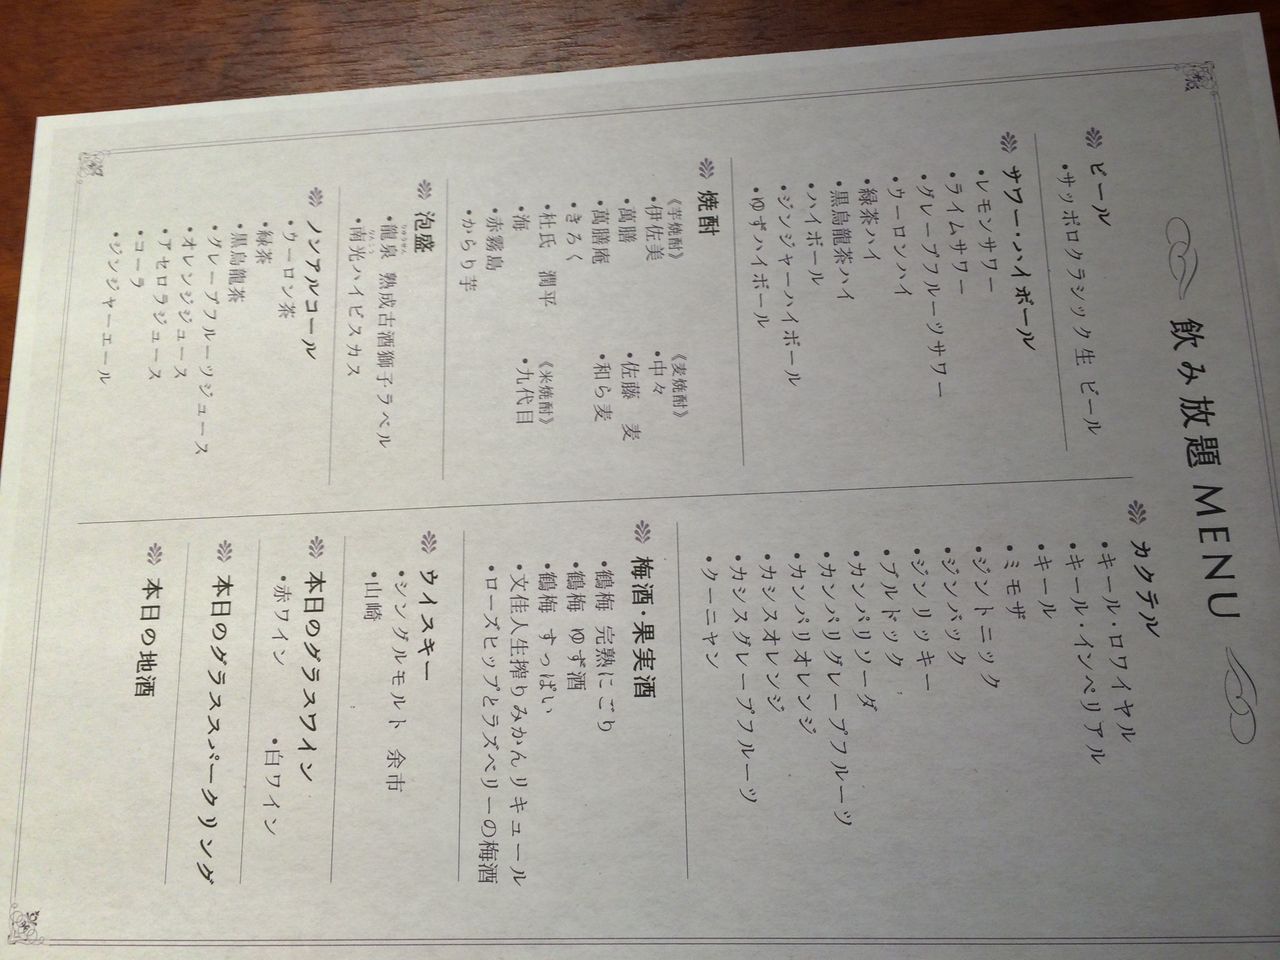 飲み放題 MENU
ビール
・サッポロクラシック生 ビール
サワー・ハイボール
・レモンサワー
・ライムサワー
・グレープフルーツサワー
・ウーロンハイ
・緑茶ハイ
・黒烏龍茶ハイ
・ハイボール
・ジンジャーハイボール
・ゆずハイボール
焼酎
《芋焼酎》
・伊佐美
・萬膳
・萬膳庵
・きろく
・杜氏 潤平
・海
・赤霧島
・からり芋
《麦焼酎》
・中々
・佐藤 麦
・和ら麦
《米焼酎》
・九代目
泡盛
・龍泉 熟成古酒獅子ラベル
・南光ハイビスカス
ノンアルコール
・ウーロン茶
・緑茶
・黒烏龍茶
・グレープフルーツジュース
・オレンジジュース
・アセロラジュース
・コーラ
・ジンジャーエール
カクテル
・キール・ロワイヤル
・キール・インペリアル
・キール
・ミモザ
・ジントニック
・ジンバック
・ジンリッキー
・ブルドック
・カンパリソーダ
・カンパリグレープフルーツ
・カンパリオレンジ
・カシスオレンジ
・カシスグレープフルーツ
・クーニャン
梅酒・果実酒
・鶴梅 完熟にごり
・鶴梅 ゆず酒
・鶴梅 すっぱい
・文佳人生搾りみかんリキュール
・ローズヒップとラズベリーの梅酒
ウイスキー
・シングルモルト 余市
・山崎
本日のグラスワイン
・赤ワイン ・白ワイン
本日のグラススパークリング
本日の地酒